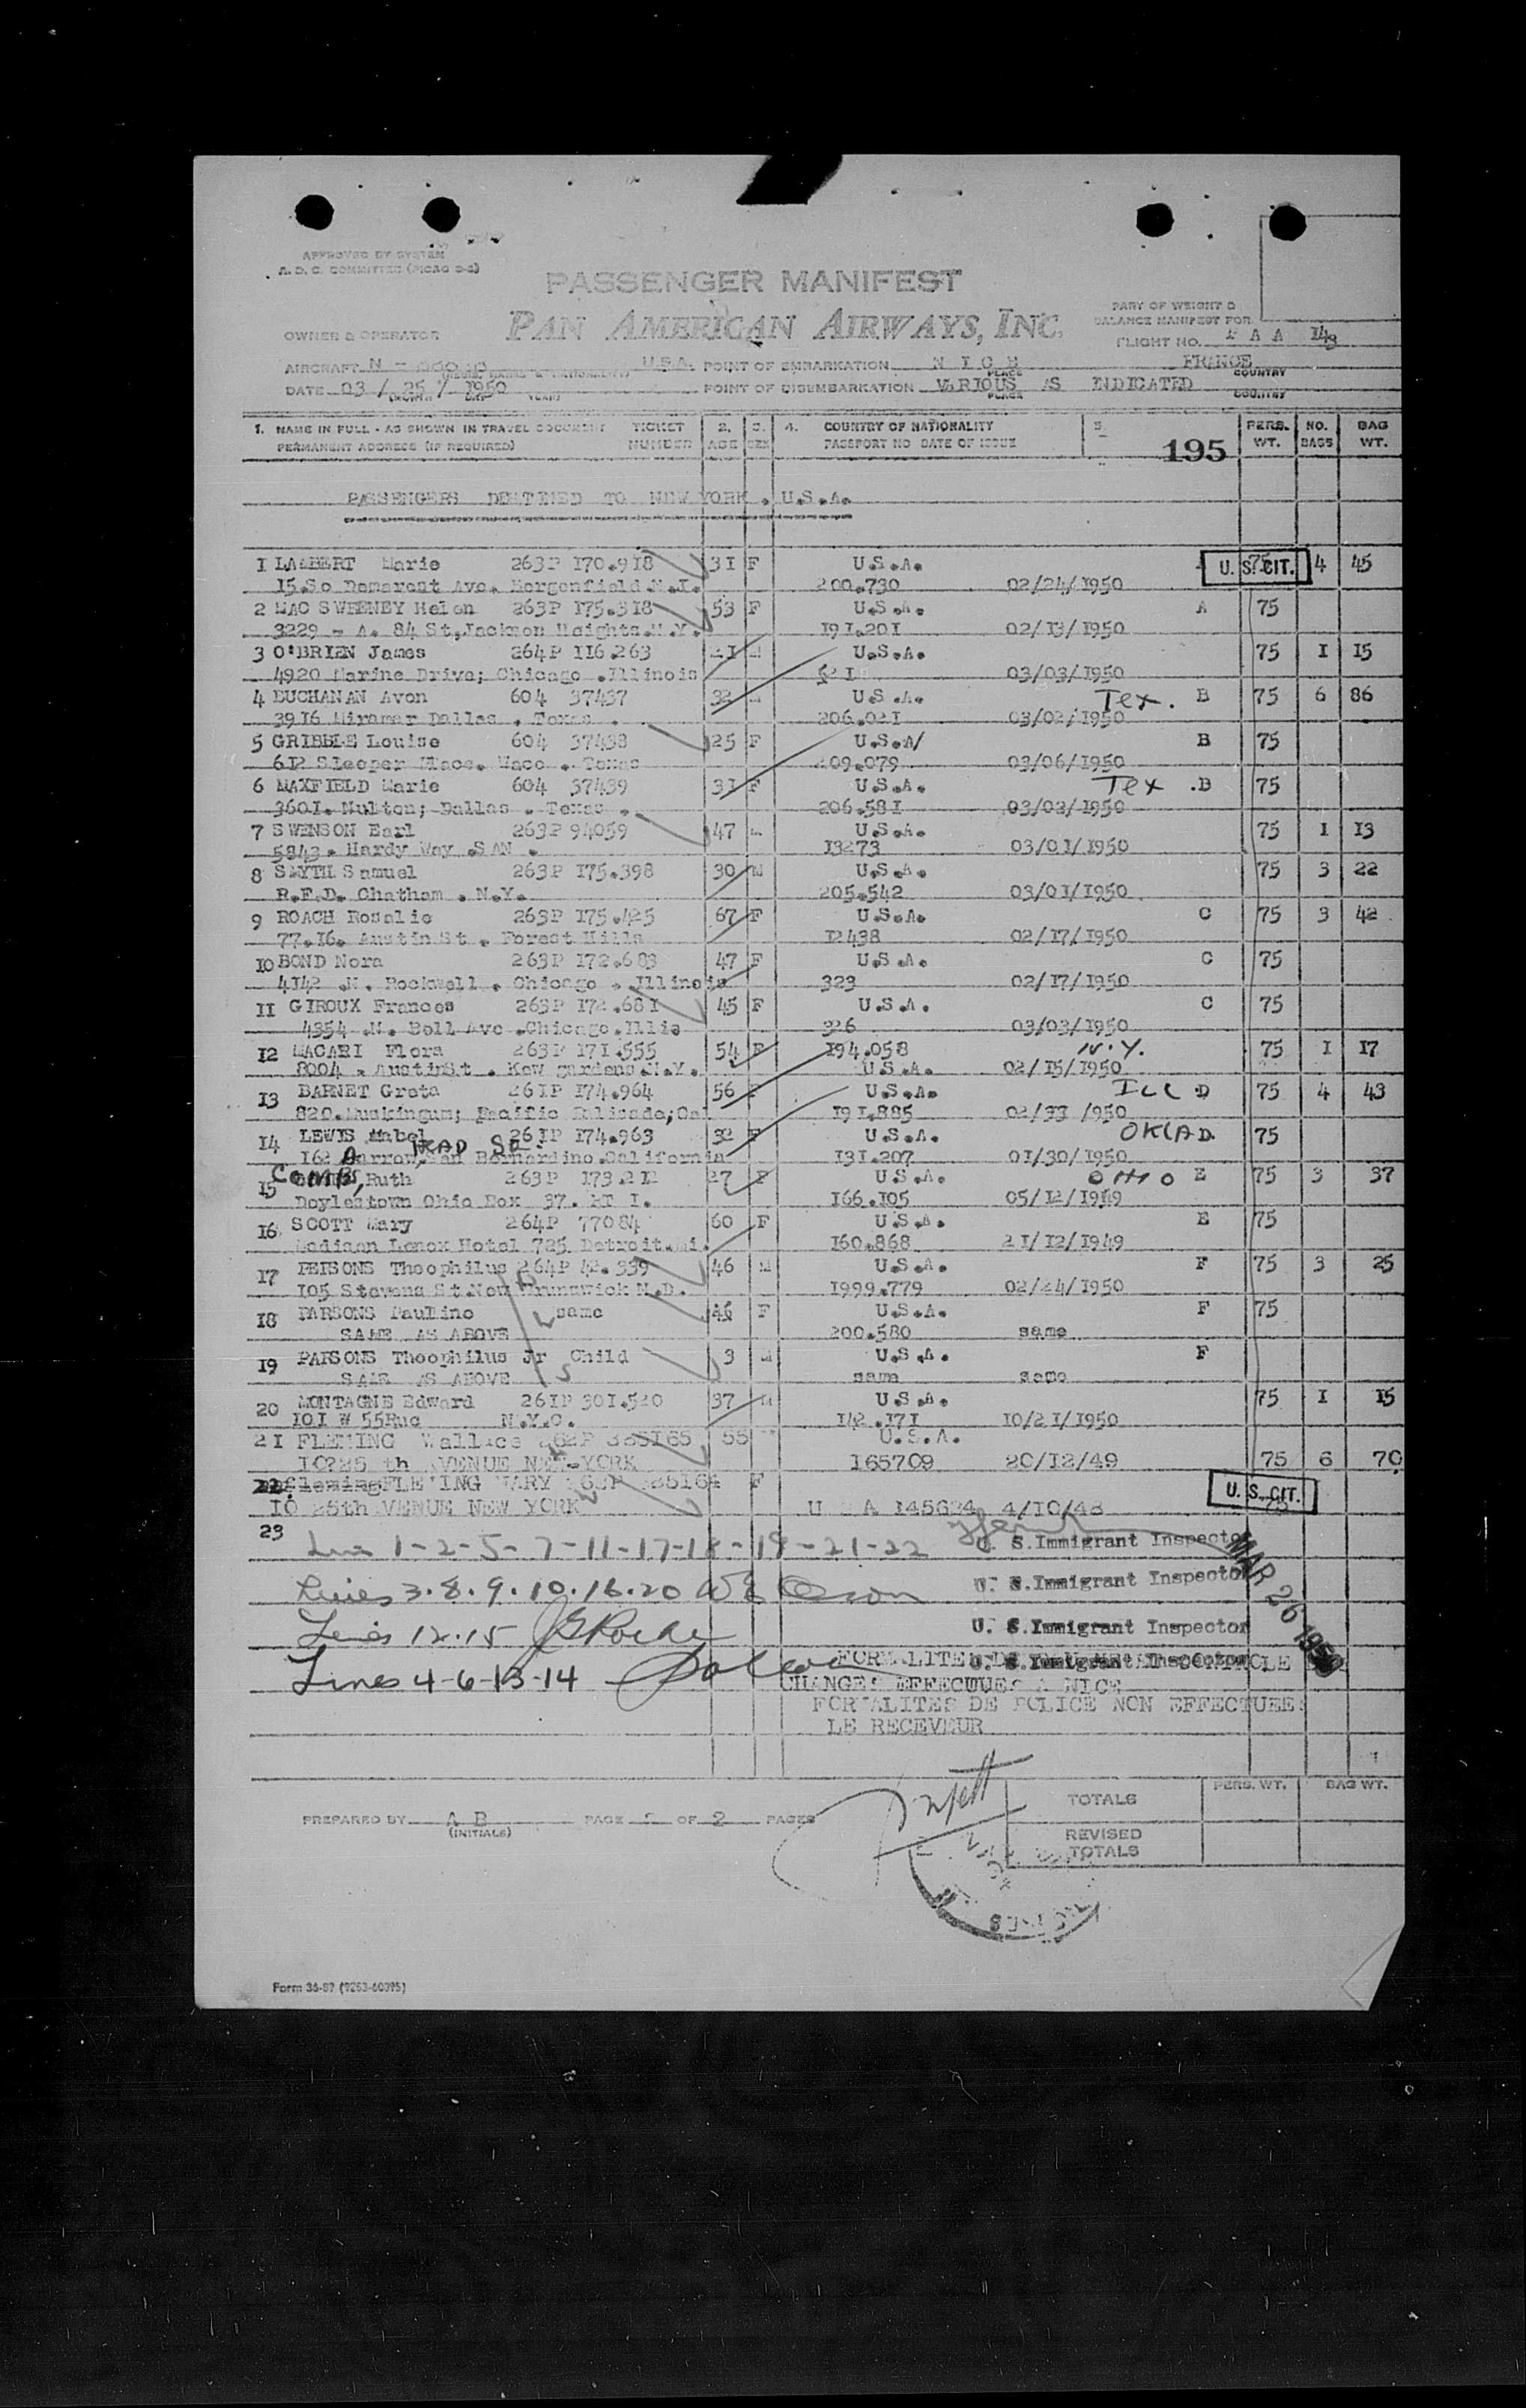 APPROVED BY SYSTEM
A. D. C. COMMITTEE (PICAO D-2)
PASSENGER MANIFEST
PAN AMERICAN AIRWAYS, INC.
PART OF WEIGHT &
BALANCE MANIFEST FOR
OWNER & OPERATOR
FLIGHT NO. P A A 143
AIRCRAFT N - U.S.A. POINT OF EMBARKATION N I C E FRANCE
PLACE COUNTRY
DATE 03 / 25 / 1950 POINT OF DISEMBARKATION VARIOUS AS INDICATED
(MONTH DAY YEAR) PLACE COUNTRY
1. NAME IN FULL - AS SHOWN IN TRAVEL DOCUMENT TICKET 2. 3. 4. COUNTRY OF NATIONALITY 5. PERS. NO. BAG
PERMANENT ADDRESS (IF REQUIRED) NUMBER AGE SEX PASSPORT NO DATE OF ISSUE 195 WT. BAGS WT.
PASSENGERS DESTINED TO NEW YORK . U.S.A.
1 LAMBERT Marie 263P 170.918 31 F U.S.A. U. S. CIT. 75 4 45
15.So Demarest Ave. Bergenfield N.J. 200.730 02/24/1950
2 MAC SWEENEY Helen 263P 175.318 53 F U.S.A. A 75
3229 - A. 84 St,Jackson Heights.N.Y. 191.201 02/13/1950
3 O'BRIEN James 264P 116.263 21 M U.S.A. 75 I 15
4920 Marine Drive; Chicago .Illinois 03/03/1950
4 BUCHANAN Avon 604 37437 32 U.S.A. Tex. B 75 6 86
3916 Miramar Dallas . Texas . 206.021 03/02/1950
5 GRIBBLE Louise 604 37438 25 F U.S.A/ B 75
612 Sleeper Place. Waco . Texas 209.079 03/06/1950
6 MAXFIELD Marie 604 37439 31 F U.S.A. Tex .B 75
3601. Dallas . Texas . 206.581 03/02/1950
7 SWENSON Earl 263P 94059 47 M U.S.A. 75 I 13
5843. Hardy Way .SAN . 13273 03/01/1950
8 SMYTH Samuel 263P 175.398 30 M U.S.A. 75 3 22
R.F.D. Chatham . N.Y. 205.542 03/01/1950
9 ROACH Rosalie 263P 175.425 67 F U.S.A. C 75 3 42
77.16. Austin St . Forest Hills 12438 02/17/1950
10 BOND Nora 263P 172.683 47 F U.S.A. C 75
4142 .N. Rockwell . Chicago . Illinois 323 02/17/1950
11 GIROUX Frances 263P 172.681 45 F U.S.A. C 75
4354 .N. Bell Ave .Chicago.Illis 326 03/03/1950
12 MACARI Flora 263P 171.555 54 F 194.058 N.Y. 75 I 17
8004 . AustinSt . Kew gardens N.Y. U.S.A. 02/15/1950
13 BARNET Greta 261P 174.964 56 F U.S.A. ILL D 75 4 43
820.Muskingum; Pacific Palisade;Cal 191.885 02/33 /950
14 LEWIS Mabel 261P 174.963 32 F U.S.A. OKLA D. 75
162 San Bernardino.California 131.207 01/30/1950
15 COMBS, Ruth 263P 173.212 27 F U.S.A. OHIO E 75 3 37
Doylestown Ohio Box 37. RT I. 166.105 05/12/1949
16 SCOTT Mary 264P 77084 60 F U.S.A. E 75
Madison Lenox Hotel 725 Detroit.Mi. 160.868 21/12/1949
17 PERSONS Theophilus 264P 42.339 46 M U.S.A. F 75 3 25
105 Stevens St.New Brunswick N.D. 1999.779 02/24/1950
18 PARSONS Pauline same 46 F U.S.A. F 75
SAME AS ABOVE 200.580 same
19 PARSONS Theophilus Jr Child 3 M U.S.A. F
SAME AS ABOVE same same
20 MONTAGNE Edward 261P 301.520 37 M U.S.A. 75 I 15
101 W 55Rue N.Y.C. 142.171 10/21/1950
21 FLEMING Wallace 262P 385165 55 U.S.A.
10?25 th AVENUE NEW-YORK 165709 20/12/49 75 6 70
22 FLEMING MARY F U. S. CIT.
10 25th AVENUE NEW YORK U S A 4/10/48 75
23 Lines 1-2-5-7-11-17-18-19-21-22 U. S.Immigrant Inspector
Lines 3.8.9.10.16.20 U. S.Immigrant Inspector
MAR 26 1950
Lines 12.15 U. S.Immigrant Inspector
Lines 4-6-13-14 U. S.Immigrant Inspector
CHANGES EFFECTUES A NICE
FORMALITES DE POLICE NON EFFECTUEES
LE RECEVEUR
PERS. WT. BAG WT.
TOTALS
PREPARED BY A B PAGE OF 2 PAGES
(INITIALS)
REVISED
TOTALS
Form 36-87 (9263-60395)